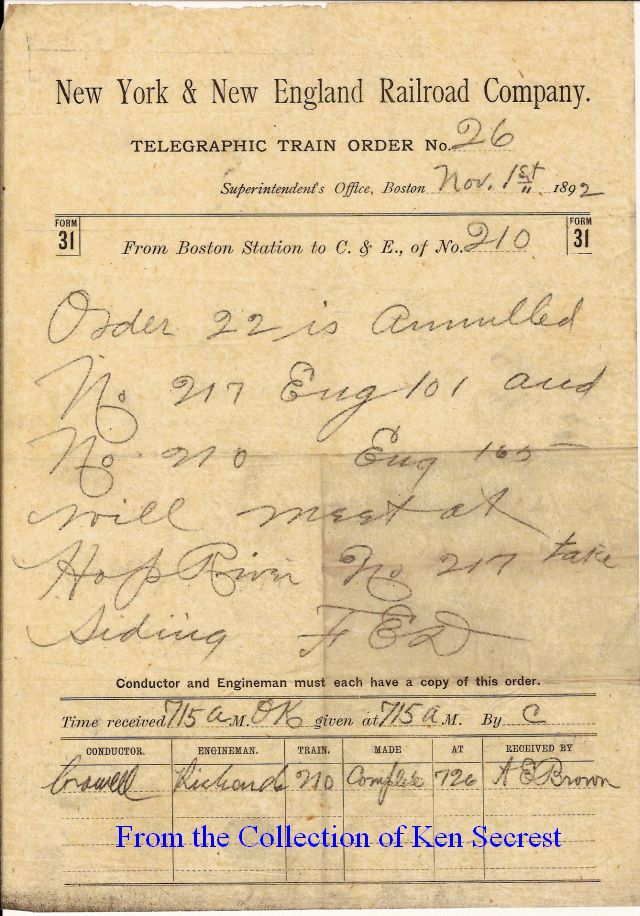 New York & New England Railroad Company.
TELEGRAPHIC TRAIN ORDER No. 26
Superintendent's Office, Boston Nov. 1st 1892
FORM 31
From Boston Station to C. & E., of No. 210
FORM 31
Order 22 is annulled
No 217 Eng 101 and
No. 210 Eng 165
will meet at
Hop River No 217 take
Siding F E D
Conductor and Engineman must each have a copy of this order.
Time received 715 a M. OK given at 715 a M. By C
CONDUCTOR. ENGINEMAN. TRAIN. MADE AT RECEIVED BY
Crowell Richards 210 Complete 726 A E Brown
From the Collection of Ken Secrest